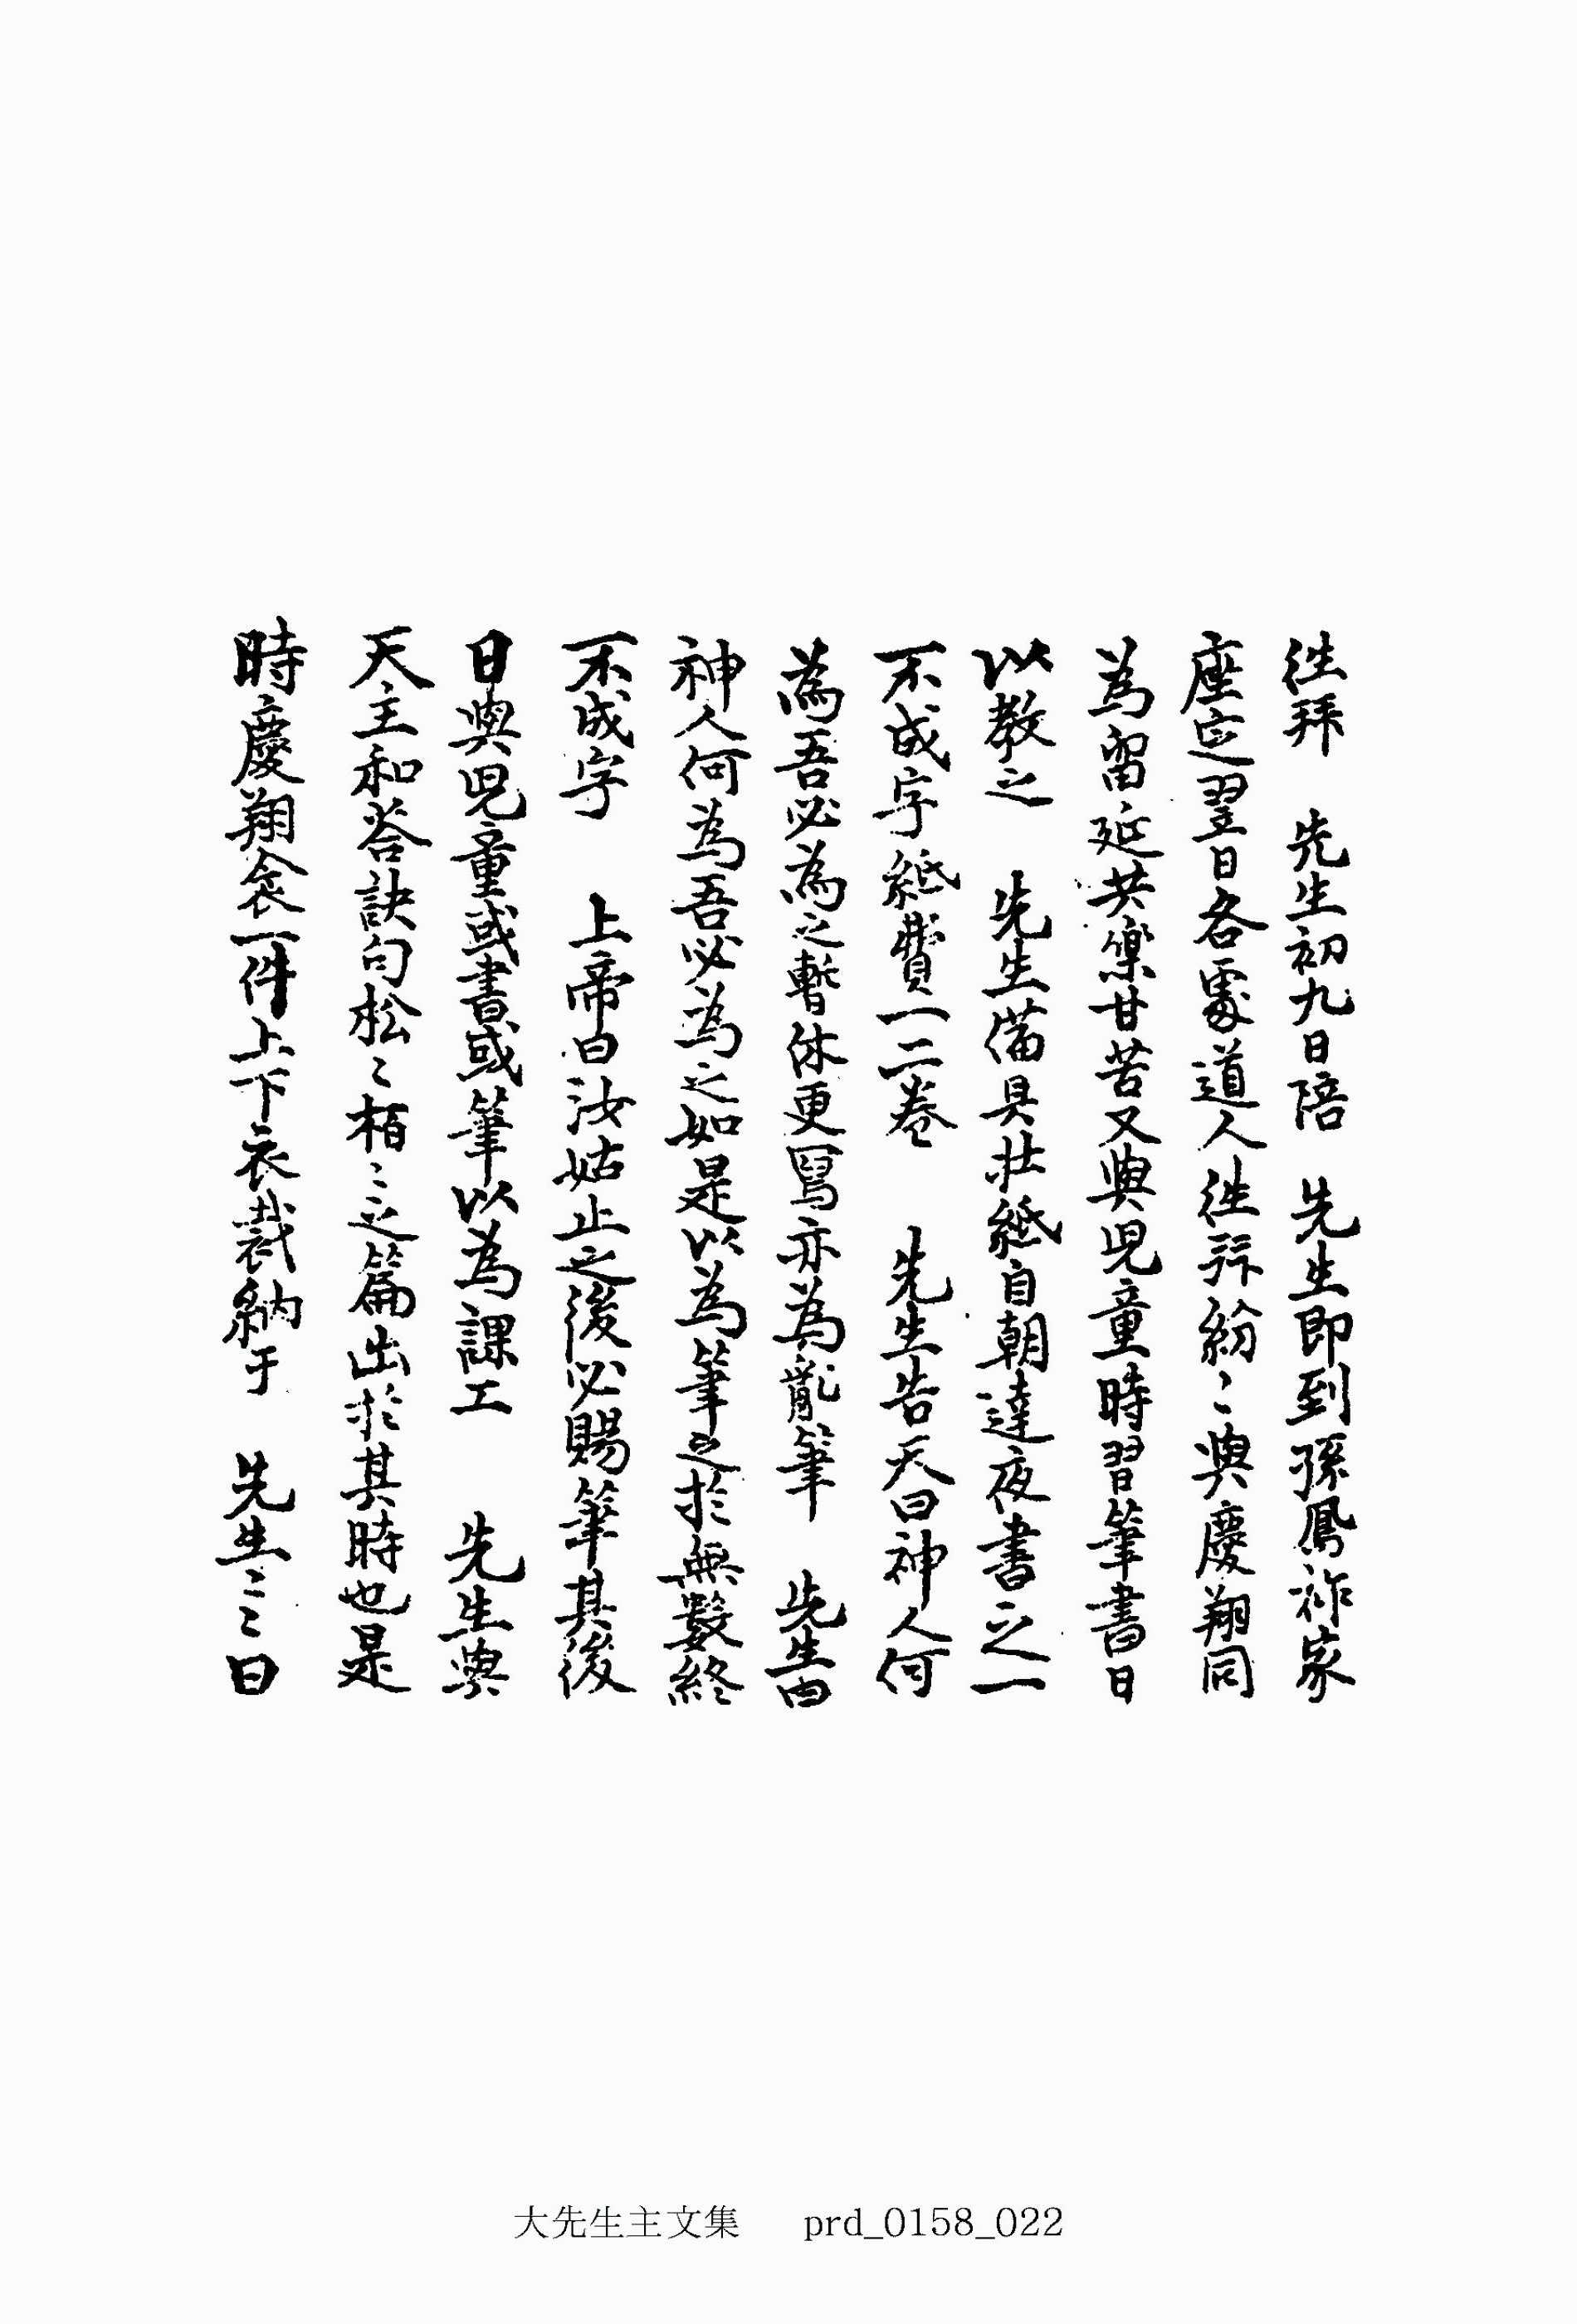 徃拜 先生初九日陪 先生即到孫鳳祚家
座定翌日各處道人徃拜紛〻與慶翔同
為留延共樂甘苦又與児童時習筆書日
以教之 先生備具壮紙自朝達夜書之一
不成字紙費一二巻 先生告天曰神人何
為吾必為之暫休更寫亦為亂筆 先生曲
神人何為吾必為之如是以為筆之於無數終
不成字 上帝曰汝姑止之後必賜筆其後
日與児童或書或筆以為課工 先生與
天主和荅訣句松〻栢〻之篇出於其時也是
時慶翔衾一件上下衣裁納于 先生〻〻曰
大先生主文集 prd_0158_022